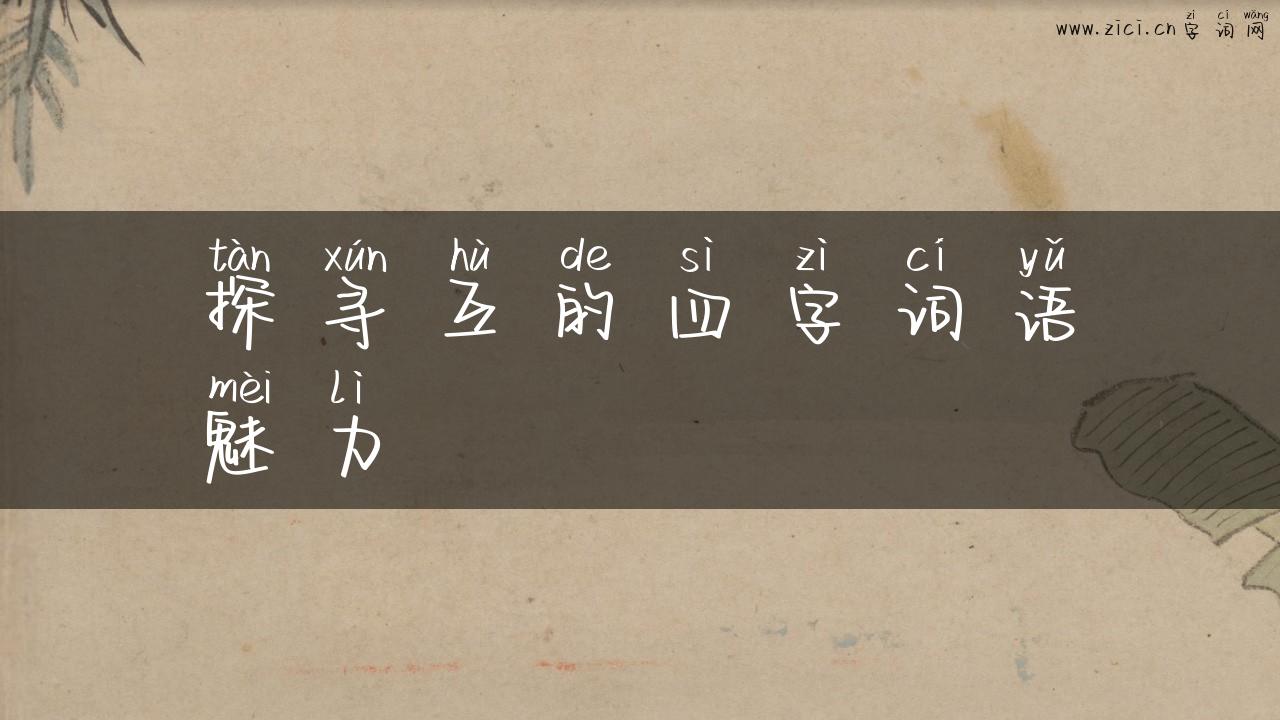 zì cí wǎng
www.zici.cn 字词网
tàn xún hù de sì zì cí yǔ
探寻互的四字词语
mèi lì
魅力